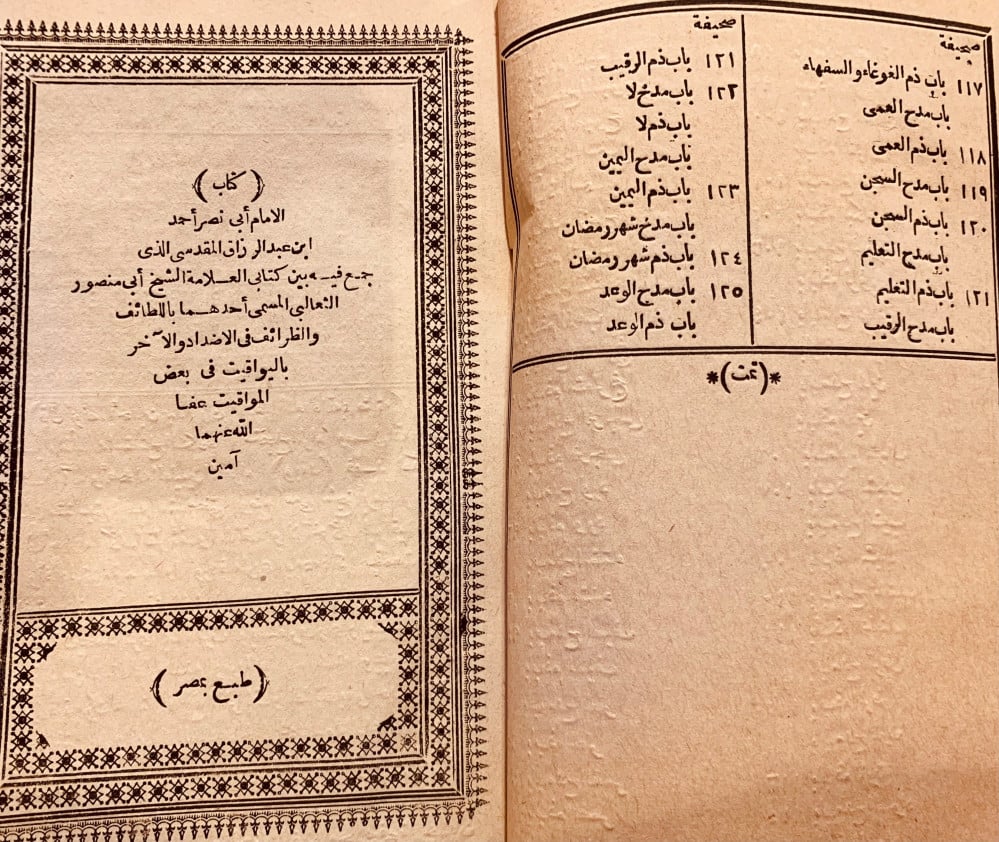 صحيفة
١١٧ باب ذم الغوغاء والسفهاء
باب مدح العمى
١١٨ باب ذم العمى
١١٩ باب مدح السجن
١٢٠ باب ذم السجن
باب مدح التعليم
١٢١ باب ذم التعليم
باب مدح الرقيب
صحيفة
١٢١ باب ذم الرقيب
١٢٢ باب مدح لا
باب ذم لا
باب مدح اليمين
١٢٣ باب ذم اليمين
باب مدح شهر رمضان
١٢٤ باب ذم شهر رمضان
١٢٥ باب مدح الوعد
باب ذم الوعد
*(تمت)*
(كتاب)
الامام أبى نصر أحمد
ابن عبد الرزاق المقدسى الذى
جمع فيه بين كتابى العلامة الشيخ أبى منصور
الثعالبى المسمى أحدهما باللطائف
والظرائف فى الاضداد والآخر
باليواقيت فى بعض
المواقيت عفا
الله عنهما
آمين
(طبع بمصر)